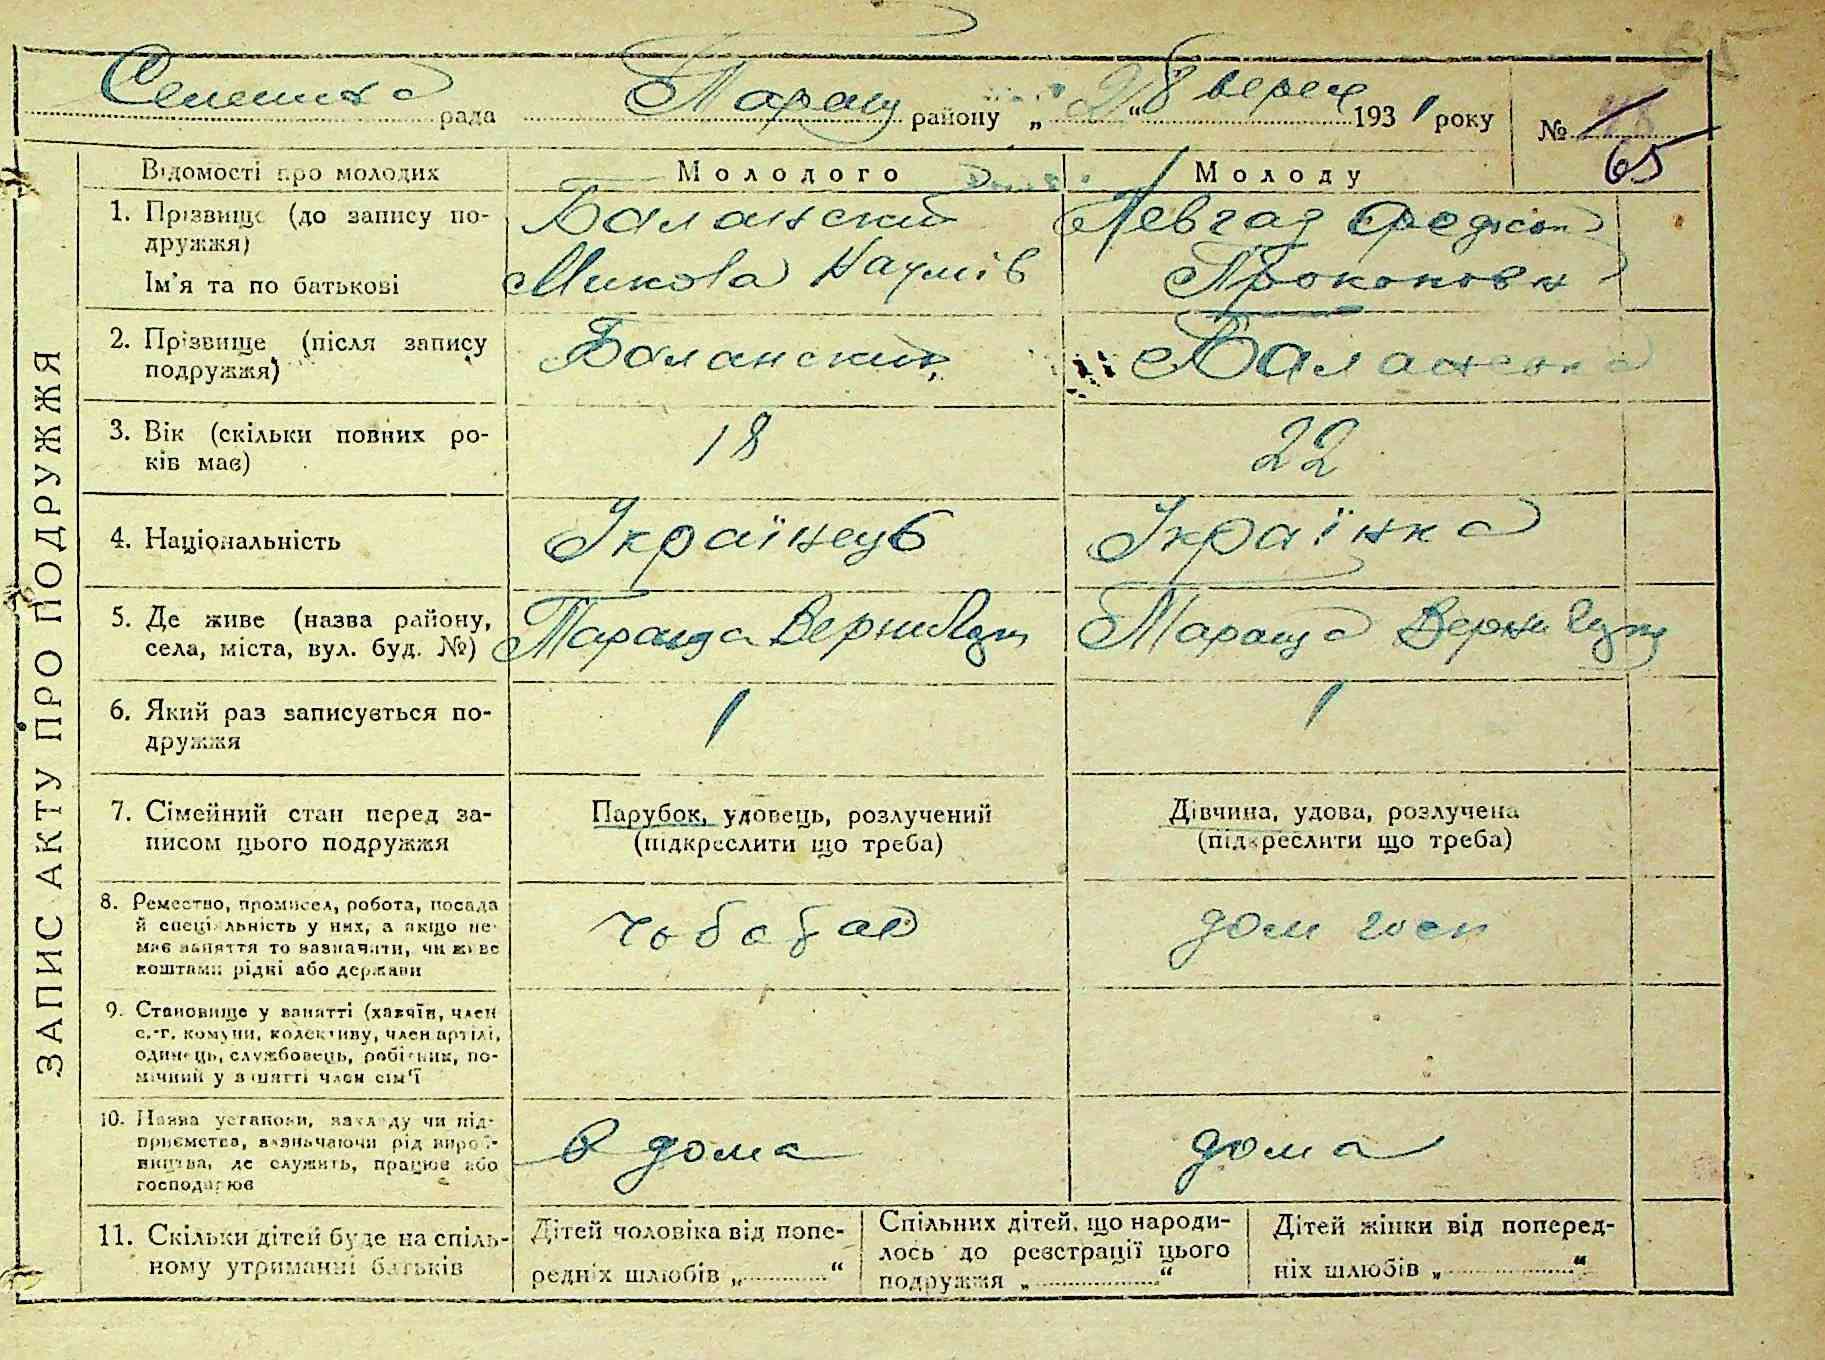 Селешка рада Таращ району „ 28 " верес 1931 року № 65
ЗАПИС АКТУ ПРО ПОДРУЖЖЯ
Відомості про молодих
Молодого
Молоду
1. Прізвище (до запису по-
дружжя)
Ім'я та по батькові
Баланский
Микола Наумів
Левгад
Прокоповн
2. Прізвище (після запису
подружжя)
Баланский
Баланська
3. Вік (скільки повних ро-
ків має)
18
22
4. Національність
Українець
Українка
5. Де живе (назва району,
села, міста, вул. буд. №)
Тараща
Тараща
6. Який раз записується по-
дружжя
1
1
7. Сімейний стан перед за-
писом цього подружжя
Парубок, удовець, розлучений
(підкреслити що треба)
Дівчина, удова, розлучена
(підкреслити що треба)
8. Ремество, промисел, робота, посада
й спеціяльність у них, а якщо не
має заняття то зазначити, чи живе
коштами рідні або держави
чоботар
дом госп
9. Становище у занятті (хазяїн, член
с.-г. комуни, колективу, член артілі,
одинець, службовець, робітник, по-
мічний у занятті член сім'ї
10. Назва установи, закладу чи під-
приємства, зазначаючи рід вироб-
ництва, де служить, працює або
господарює
в дома
дома
11. Скільки дітей буде на спіль-
ному утриманні батьків
Дітей чоловіка від попе-
редніх шлюбів „ "
Спільних дітей, що народи-
лось до реєстрації цього
подружжя „ "
Дітей жінки від поперед-
ніх шлюбів „ "